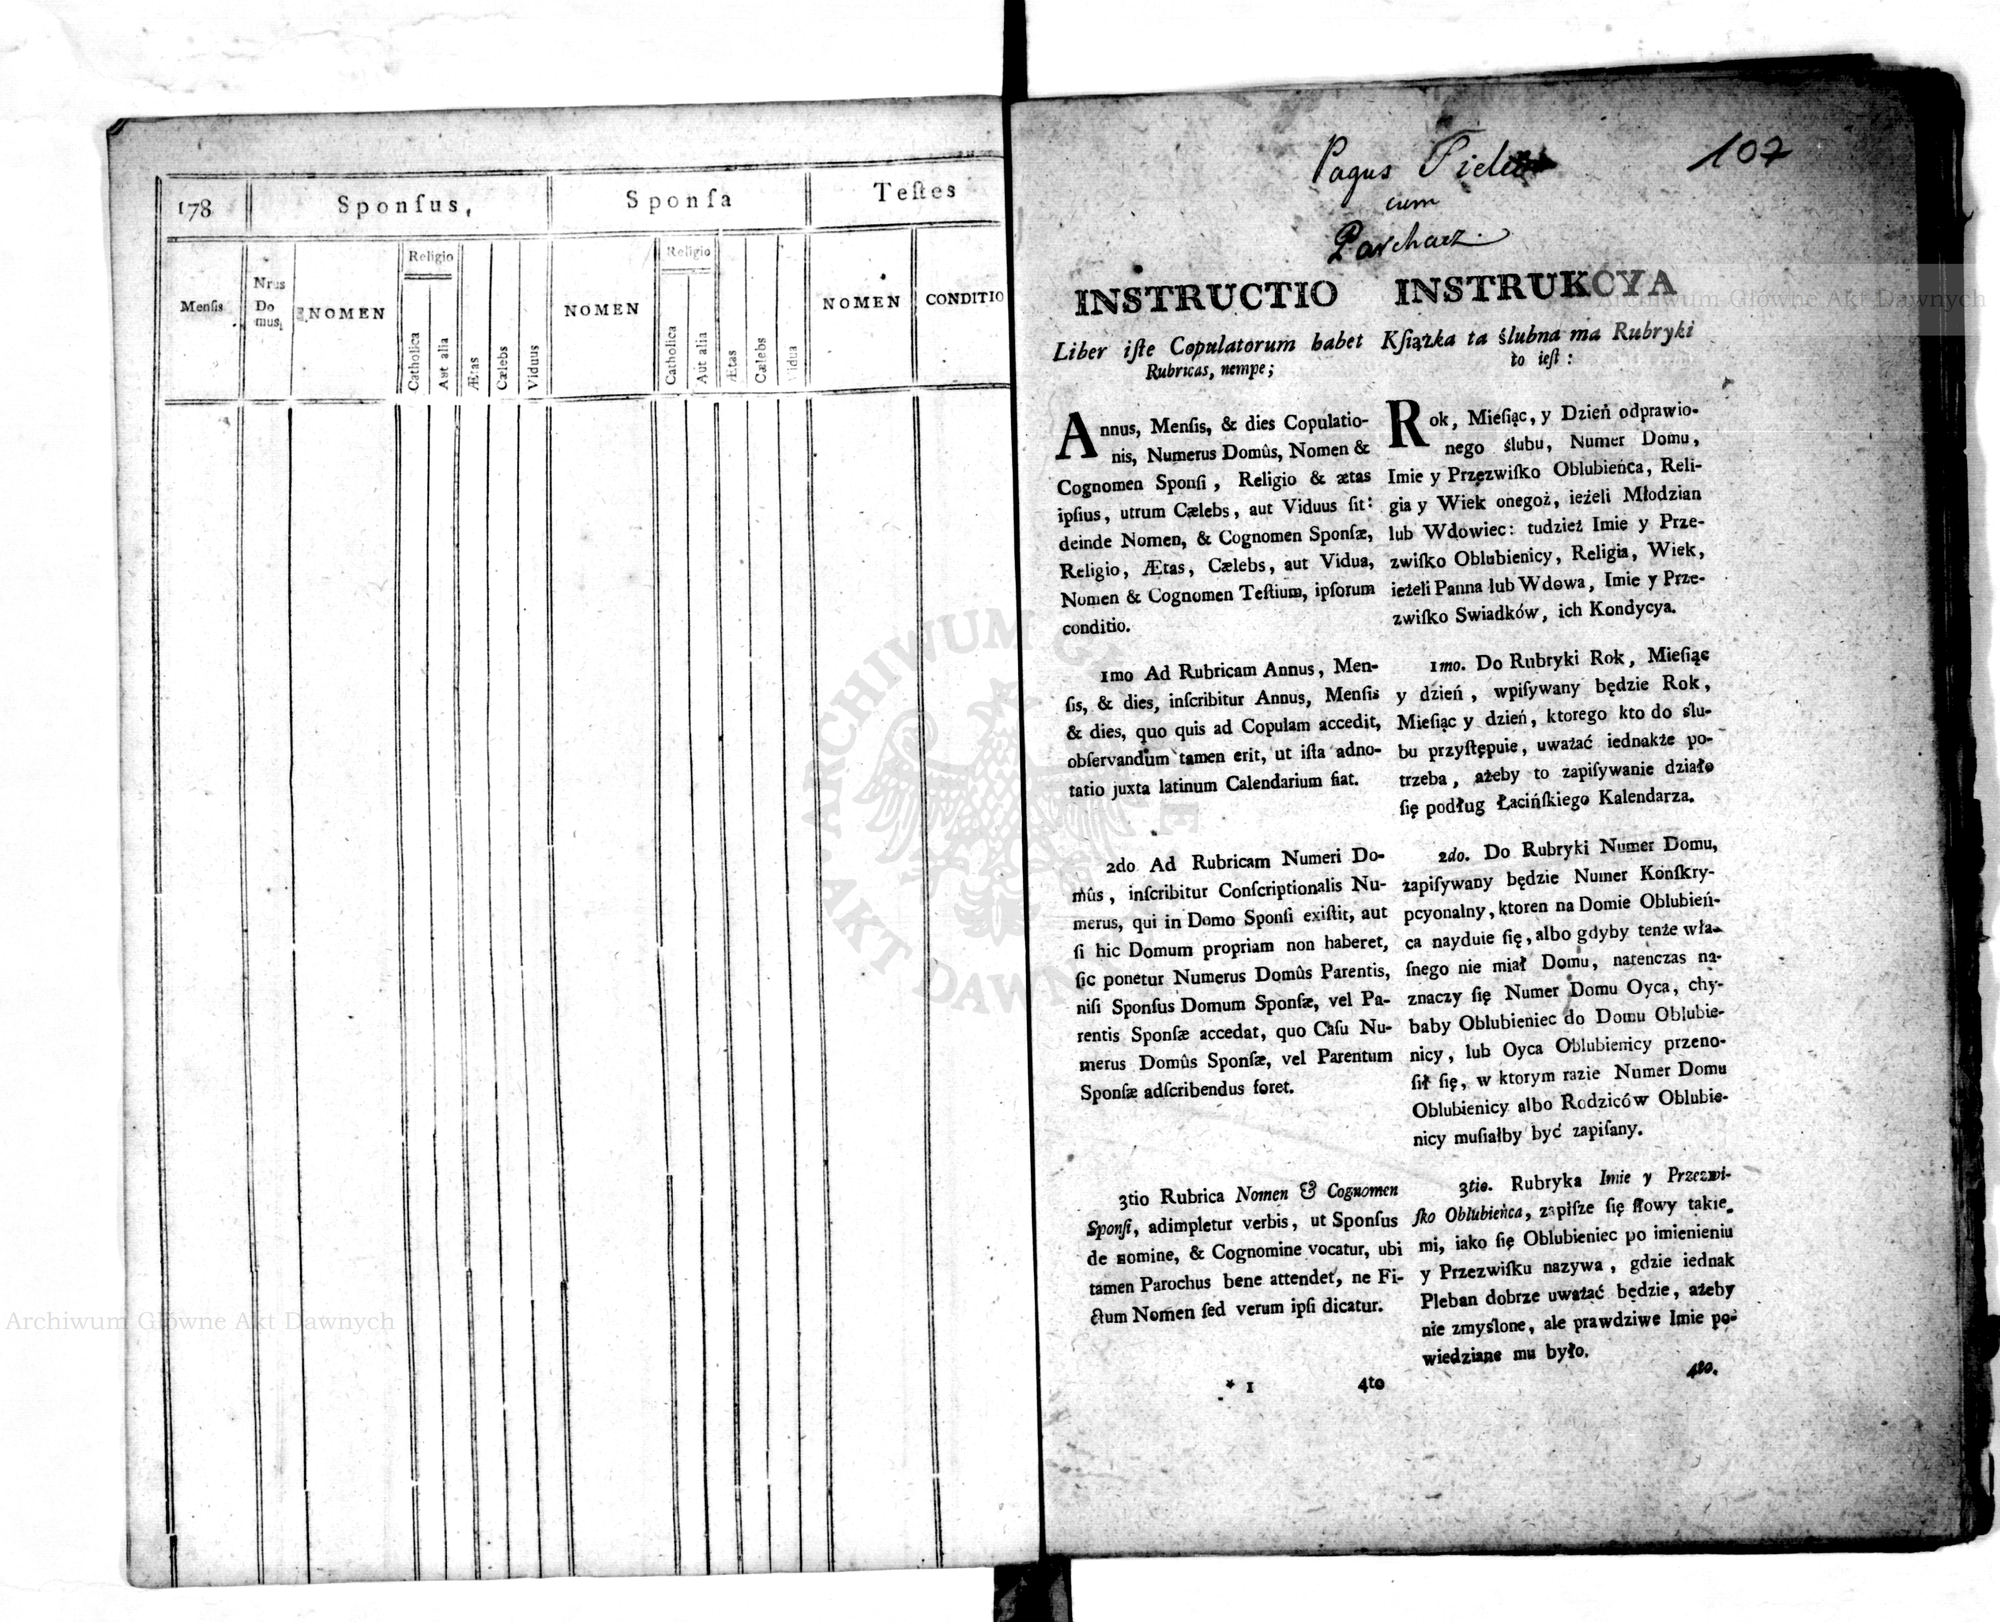 178
Sponſus,
Sponſa
Teſtes
Menſis
Nrus
Do
mus,
NOMEN
Religio
Catholica
Aut alia
Ætas
Cælebs
Viduus
NOMEN
Religio
Catholica
Aut alia
Ætas
Cælebs
Vidua
NOMEN
CONDITIO
Pagus
cum
Parchacz.
107
INSTRUCTIO
Liber iſte Copulatorum habet
Rubricas, nempe;
Annus, Menſis, & dies Copulatio-
nis, Numerus Domûs, Nomen &
Cognomen Sponſi, Religio & ætas
ipſius, utrum Cælebs, aut Viduus ſit:
deinde Nomen, & Cognomen Sponſæ,
Religio, Ætas, Cælebs, aut Vidua,
Nomen & Cognomen Teſtium, ipſorum
conditio.
1mo Ad Rubricam Annus, Men-
ſis, & dies, inſcribitur Annus, Menſis
& dies, quo quis ad Copulam accedit,
obſervandum tamen erit, ut iſta adno-
tatio juxta latinum Calendarium fiat.
2do Ad Rubricam Numeri Do-
mûs, inſcribitur Conſcriptionalis Nu-
merus, qui in Domo Sponſi exiſtit, aut
ſi hic Domum propriam non haberet,
ſic ponetur Numerus Domûs Parentis,
niſi Sponſus Domum Sponſæ, vel Pa-
rentis Sponſæ accedat, quo Caſu Nu-
merus Domûs Sponſæ, vel Parentum
Sponſæ adſcribendus foret.
3tio Rubrica Nomen & Cognomen
Sponſi, adimpletur verbis, ut Sponſus
de nomine, & Cognomine vocatur, ubi
tamen Parochus bene attendet, ne Fi-
ctum Nomen ſed verum ipſi dicatur.
* 1
4to
INSTRUKCYA
Kſiążka ta ślubna ma Rubryki
to ieſt:
Rok, Mieſiąc, y Dzień odprawio-
nego ślubu, Numer Domu,
Imie y Przęzwiſko Oblubieńca, Reli-
gia y Wiek onegoż, ieżeli Młodzian
lub Wdowiec: tudzież Imie y Prze-
zwiſko Oblubienicy, Religia, Wiek,
ieżeli Panna lub Wdowa, Imie y Prze-
zwiſko Swiadków, ich Kondycya.
1mo. Do Rubryki Rok, Mieſiąc
y dzień, wpiſywany będzie Rok,
Mieſiąc y dzień, ktorego kto do slu-
bu przyſtępuie, uważać iednakże po-
trzeba, ażeby to zapiſywanie działo
ſię podług Łacińſkiego Kalendarza.
2do. Do Rubryki Numer Domu,
zapiſywany będzie Numer Konſkry-
pcyonalny, ktoren na Domie Oblubień-
ca nayduie ſię, albo gdyby tenże wła-
ſnego nie miał Domu, natenczas na-
znaczy ſię Numer Domu Oyca, chy-
baby Oblubieniec do Domu Oblubie-
nicy, lub Oyca Oblubienicy przeno-
ſił ſię, w ktorym razie Numer Domu
Oblubienicy albo Rodziców Oblubie-
nicy muſiałby być zapiſany.
3tio. Rubryka Imie y Przezwi-
ſko Oblubieńca, zapiſze ſię ſłowy takie-
mi, iako ſię Oblubieniec po imienieniu
y Przezwiſku nazywa, gdzie iednak
Pleban dobrze uważać będzie, ażeby
nie zmyslone, ale prawdziwe Imie po-
wiedziane mu było.
4to.
Archiwum Główne Akt Dawnych
Archiwum Główne Akt Dawnych